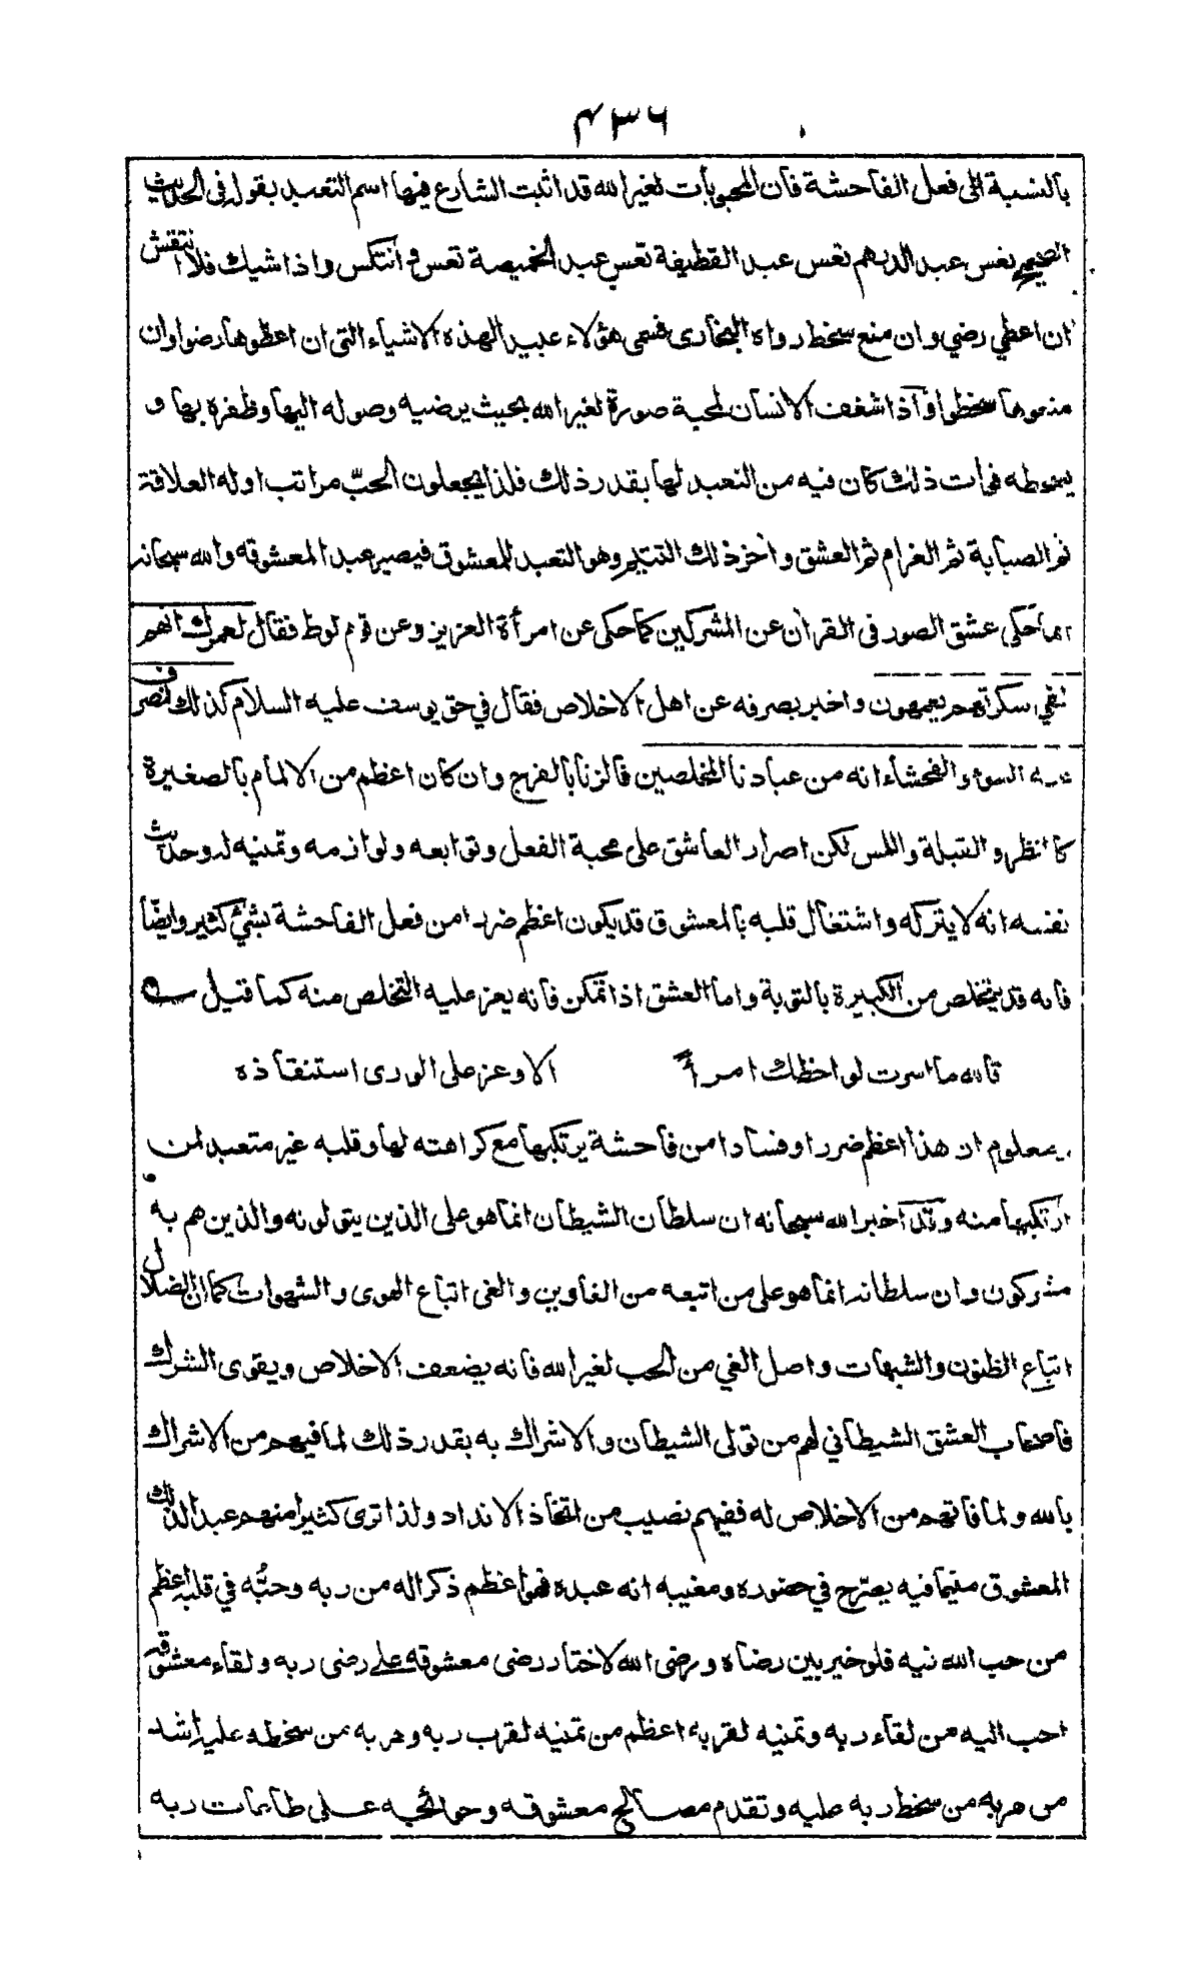 ٤٣٦
بالنسبة الى فعل الفاحشة فان المحبوبات لغير الله قد اثبت الشارع فيها اسم التعبد بقوله في الحديث
الصحيح تعس عبد الدرهم تعس عبد القطيفة تعس عبد الخميصة تعس وانتكس واذا شيك فلا انتقش
ان اعطي رضي وان منع سخط رواه البخاري فسمى هؤلاء عبيدا لهذه الاشياء التي ان اعطوها رضوا وان
منعوها سخطوا فاذا شغف الانسان لمحبة صورة لغير الله بحيث يرضيه وصوله اليها وظفره بها و
يسخطه فوات ذلك كان فيه من التعبد لها بقدر ذلك فلذا يجعلون الحبّ مراتب اوله العلاقة
ثم الصبابة ثم الغرام ثم العشق واخر ذلك التتيم وهو التعبد للمعشوق فيصير عبدا لمعشوقه والله سبحانه
انما حكى عشق الصور في القران عن المشركين كما حكى عن امرأة العزيز وعن قوم لوط فقال لعمرك انهم
لفي سكرتهم يعمهون واخبر بصرفه عن اهل الاخلاص فقال في حق يوسف عليه السلام كذلك لنصرف
عنه السوء والفحشاء انه من عبادنا المخلصين فالزنا بالفرج وان كان اعظم من الالمام بالصغيرة
كالنظر والقبلة واللمس لكن اصرار العاشق على محبة الفعل وتوابعه ولوازمه وتمنيه له وحديث
نفسه انه لا يتركه واشتغال قلبه بالمعشوق قد يكون اعظم ضررا من فعل الفاحشة بشئ كثير وايضًا
فانه قد يتخلص من الكبيرة بالتوبة واما العشق اذا تمكن فانه يعز عليه التخلص منه كما قيل
تالله ما اسرت لواحظك امرأً الا وعز على الورى استنقاذه
ومعلوم ان هذا اعظم ضررا وفسادا من فاحشة يرتكبها مع كراهته لها وقلبه غير متعبد لمن
ارتكبها منه وقد اخبر الله سبحانه ان سلطان الشيطان انما هو على الذين يتولونه والذين هم به
مشركون وان سلطانه انما هو على من اتبعه من الغاوين والغي اتباع الهوى والشهوات كما ان الضلال
اتباع الظنون والشبهات واصل الغي من الحب لغير الله فانه يضعف الاخلاص ويقوى الشرك
فاصحاب العشق الشيطاني لهم من تولى الشيطان والاشراك به بقدر ذلك لما فيهم من الاشراك
بالله ولما فاتهم من الاخلاص له ففيهم نصيب من اتخاذ الانداد ولذا ترى كثيرا منهم عبدا لذلك
المعشوق متيما فيه يصرّح في حضوره ومغيبه انه عبده فهو اعظم ذكرا له من ربه وحبُّه في قلبه اعظم
من حب الله فيه فلو خير بين رضاه ورضى الله لاختار رضى معشوقه على رضى ربه ولقاء معشوقه
احب اليه من لقاء ربه وتمنيه لقربه اعظم من تمنيه لقرب ربه وهربه من سخطه عليه اشد
من هربه من سخط ربه عليه وتقدم مصالح معشوقه وحوائجه على طاعات ربه